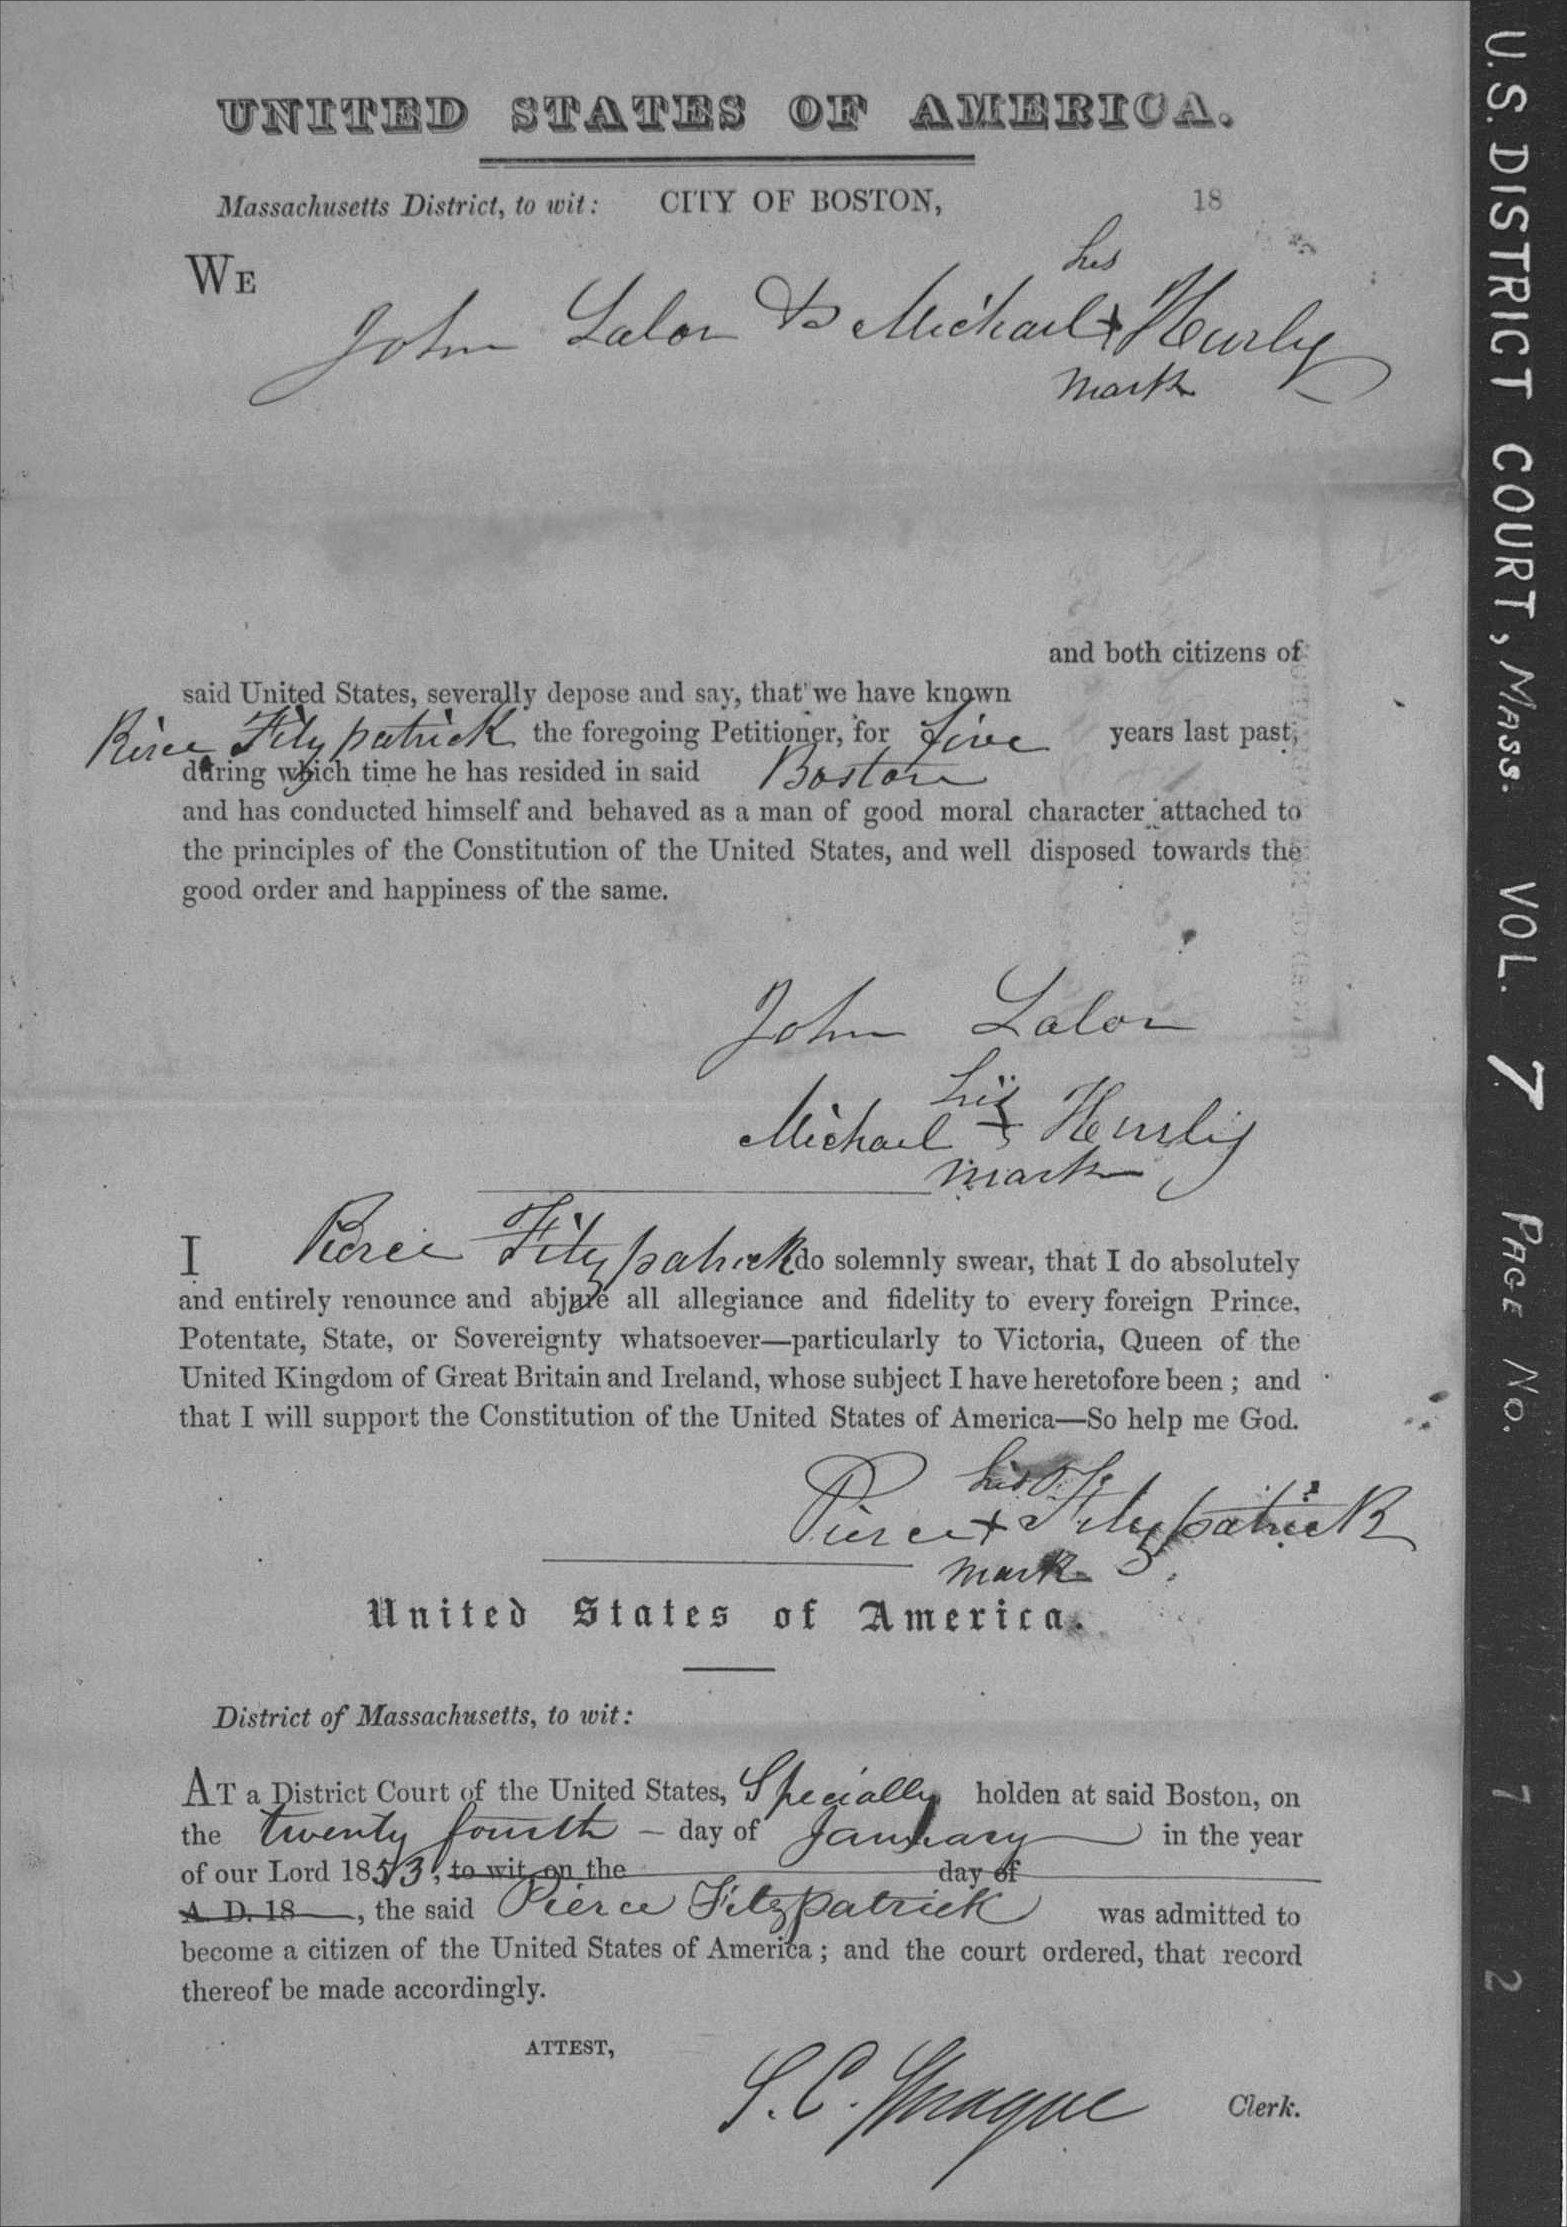 UNITED STATES OF AMERICA.
Massachusetts District, to wit: CITY OF BOSTON, 18
WE
his
John Lalor & Michael + Hurly
mark
and both citizens of
said United States, severally depose and say, that we have known
Pierce Fitzpatrick the foregoing Petitioner, for five years last past,
during which time he has resided in said Boston
and has conducted himself and behaved as a man of good moral character attached to
the principles of the Constitution of the United States, and well disposed towards the
good order and happiness of the same.
John Lalor
his
Michael + Hurly
mark
I Pierce Fitzpatrick do solemnly swear, that I do absolutely
and entirely renounce and abjure all allegiance and fidelity to every foreign Prince,
Potentate, State, or Sovereignty whatsoever—particularly to Victoria, Queen of the
United Kingdom of Great Britain and Ireland, whose subject I have heretofore been; and
that I will support the Constitution of the United States of America—So help me God.
his
Pierce + Fitzpatrick
mark
United States of America.
District of Massachusetts, to wit:
AT a District Court of the United States, Specially holden at said Boston, on
the twenty fourth – day of January in the year
of our Lord 1853, to wit, on the day of
A. D. 18 , the said Pierce Fitzpatrick was admitted to
become a citizen of the United States of America; and the court ordered, that record
thereof be made accordingly.
ATTEST,
S. C. Sprague Clerk.
U.S. DISTRICT COURT, MASS. VOL. 7 PAGE NO. 1 2